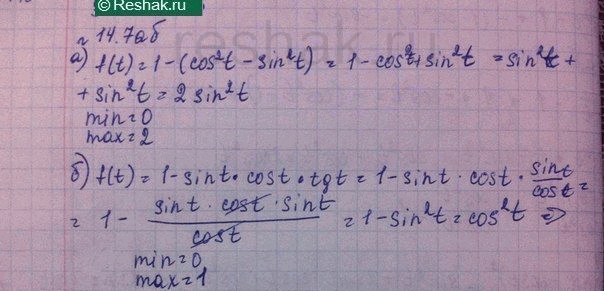 © Reshak.ru
reshak.ru
№ 14.7аб
а) f(t) = 1 - (cos²t - sin²t) = 1 - cos²t + sin²t = sin²t +
+ sin²t = 2 sin²t
min = 0
max = 2
б) f(t) = 1 - sint · cost · tgt = 1 - sint · cost · sint/cost =
= 1 - sint · cost · sint/cost = 1 - sin²t = cos²t ⇒
min = 0
max = 1